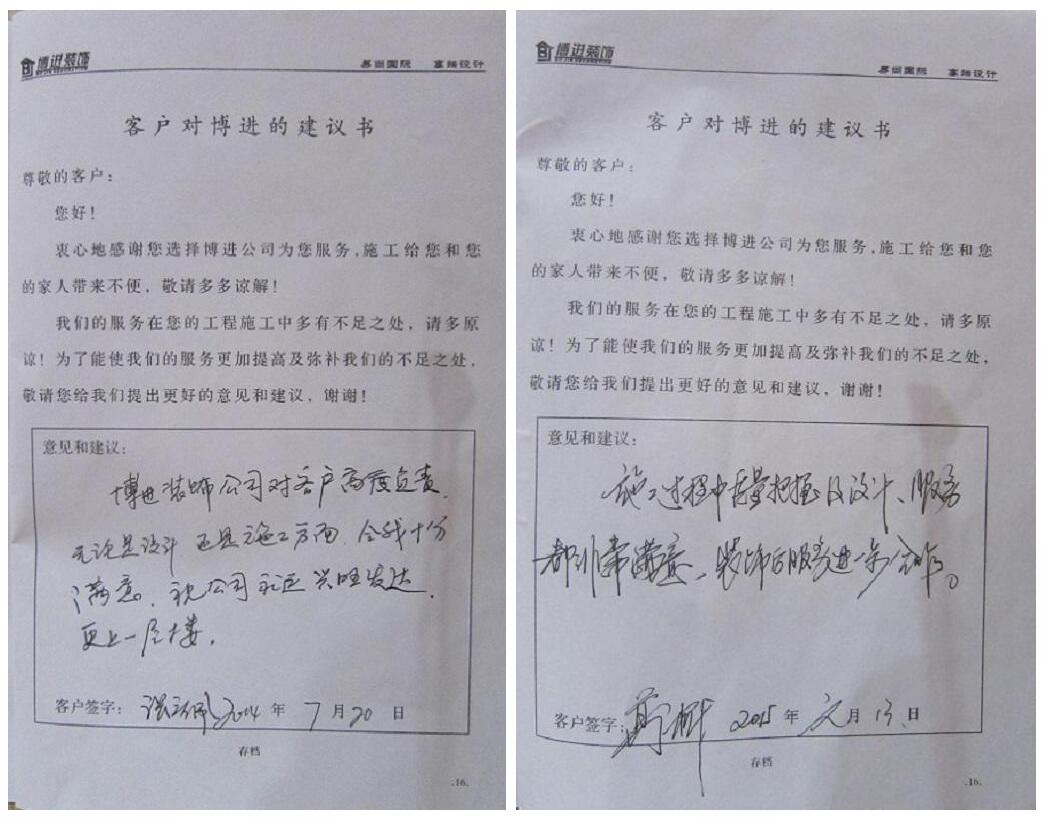 博进装饰
易尚国际 高端设计
客户对博进的建议书
尊敬的客户：
您好！
衷心地感谢您选择博进公司为您服务,施工给您和您
的家人带来不便，敬请多多谅解！
我们的服务在您的工程施工中多有不足之处，请多原
谅！为了能使我们的服务更加提高及弥补我们的不足之处，
敬请您给我们提出更好的意见和建议，谢谢！
意见和建议：
博进装饰公司对客户高度负责，
无论是设计，还是施工方面，令我十分
满意，祝公司永远兴旺发达，
更上一层楼。
客户签字： 2014 年 7 月 20 日
存档
.16.
博进装饰
客户对博进的建议书
尊敬的客户：
您好！
衷心地感谢您选择博进公司为您服务,施工给您和您
的家人带来不便，敬请多多谅解！
我们的服务在您的工程施工中多有不足之处，请多原
谅！为了能使我们的服务更加提高及弥补我们的不足之处，
敬请您给我们提出更好的意见和建议，谢谢！
意见和建议：
施工过程中质量把握及设计、服务
都非常满意，装饰后服务进一步合作。
客户签字： 2015 年 月 13 日
存档
.16.